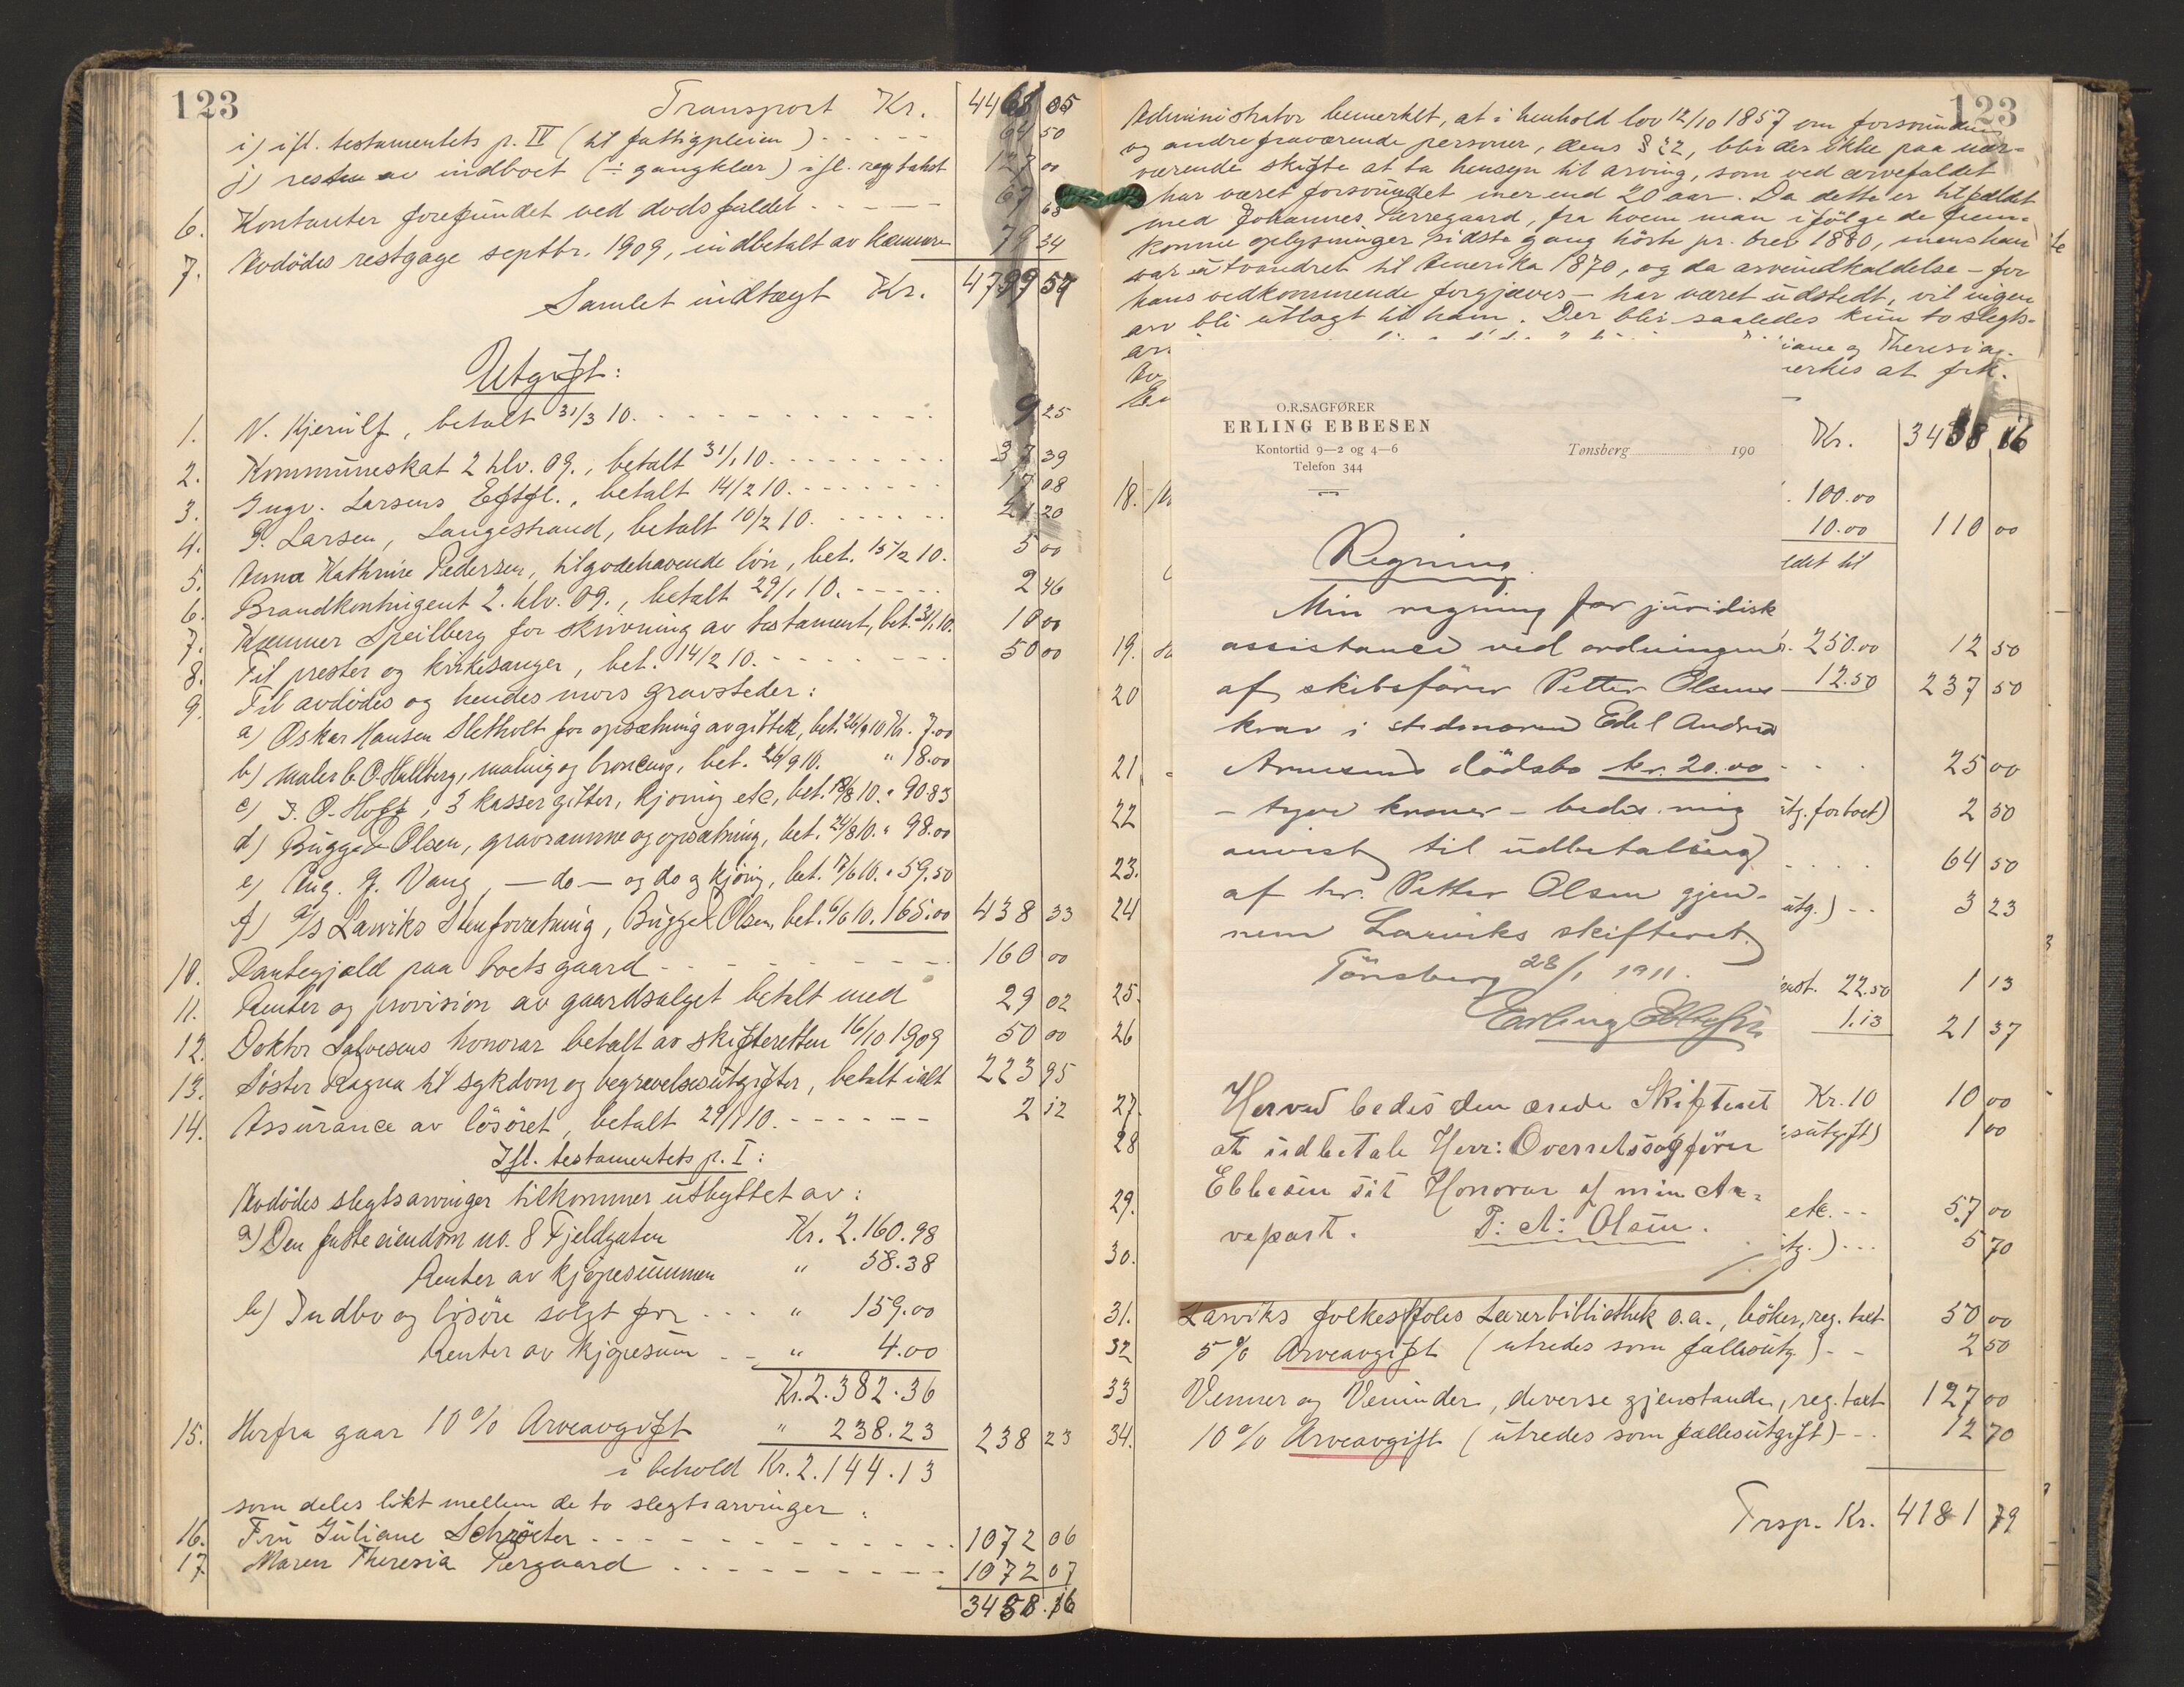 123
Transport Kr. 4468 05
i) ifl. testamentets p. IV (til fattigpleien) - - - - - 64 50
j) resten av indboet (÷ gangklær) ifl. reg takst 127 00
6. Kontanter forefundet ved dødsfaldet - - - - - 67 63
7. Avdødes restgage septbr. 1909, indbetalt av kæmner
34
Samlet indtægt Kr. 4799 57
Utgift:
1. N. Kjerulf, betalt 31/3 10. - - - - - 9 25
2. Kommuneskat 2 hlv. 09., betalt 31/1 10. - - - - 37 39
3. Ingv. Larsens Eftfl., betalt 14/2 10. - - - - 17 08
4. P. Larsen, Langestrand, betalt 10/2 10. - - - - 21 20
5. Anna Kathrine Pedersen, tilgodehavende lön, bet. 15/2 10. 5 00
6. Brandkontingent 2. hlv. 09., betalt 29/1 10. - - - - 2 46
7. Kæmner Speilberg for skrivning av testament, bet. 31/1 10. 10 00
8. Til prester og kirkesanger, bet. 14/2 10. - - - - 50 00
9. Til avdødes og hendes mors gravsteder:
a) Oskar Hansen Sletholt for opsætning av gitter, bet. 26/9 10 Kr. 7.00
b) Maler C. O. Hallberg, maling og broncing, bet. 26/9 10. " 18.00
c) J. O. Hoff, 3 kasser gitter, kjøring etc, bet. 18/8 10. " 90.83
d) Bugge & Olsen, gravramme og opsætning, bet. 24/8 10. " 98.00
e) Aug. G. Vang, — do — og do g kjøring, bet. 17/6 10. " 59.50
f) A/S Larviks Stenforretning, Bugge & Olsen, bet. 6/6 10. 165.00 438 33
10. Pantegjæld paa boets gaard - - - - - 160 00
11. Renter og provision av gaardsalget betalt med 29 02
12. Doktor Salvesens honorar betalt av skifteretten 16/10 1909 50 00
13. Søster Ragna til sykdom og begravelsesutgifter, betalt ialt 223 95
14. Assurance av løsøret, betalt 29/1 10. - - - - - 2 12
Ifl. testamentets p. I:
Avdødes slegtsarvinger tilkommer utbyttet av:
a) Den faste eiendom no. 8 Fjeldgaten Kr. 2.160.98
Renter av kjøpesummen " 58.38
b) Indbo og løsøre solgt for - - - " 159.00
Renter av kjøpesum - - " 4.00
Kr. 2.382.36
15. Herfra gaar 10% Arveavgift " 238.23 238 23
i behold Kr. 2.144.13
som deles likt mellem de to slegtsarvinger:
16. Fru Juliane Schrøter - - - - - 1072 06
17. Maren Theresia Pergaard - - - - - 1072 07
3458.16
123
Administrator bemerket, at i henhold lov 12/10 1857 om forsvundne
og andre fraværende personer, dens § 22, blir der ikke paa nær-
værende skifte at ta hensyn til arving, som ved arvefaldet
har været forsvundet mer end 20 aar. Da dette er tilfældet
med Johannes Perregaard, fra hvem man ifölge de frem-
komne oplysninger sidste gang hörte pr. brev 1880, mens han
var utvandret til Amerika 1870, og da arveindkaldelse – for
hans vedkommende forgjæves – har været udstedt, vil ingen
arv bli utlagt til ham. Der blir saaledes kun to slegts-
iane og Theresia
erkes at frk.
Kr. 3458 16
18.
100.00
10.00 110 00
ldet til
19. 250.00 12 50
20 12.50 237 50
21. 25 00
22 utg. for boet) 2 50
23. 64 50
24 utg.) - - 3 23
25. 22.50 1 13
26 1.13 21 37
27. Kr. 10 10 00
28 sutgift) 1 00
29. etc. - - 57 00
30. utg.) - - - 5 70
O.R.SAGFØRER
ERLING EBBESEN
Kontortid 9—2 og 4—6
Telefon 344
Tønsberg 190
Regning.
Min regning for juridisk
assistance ved ordningen
af skibsfører Petter Olsens
krav i stedmoren Edel Andrea
Arnesens dödsbo kr. 20.00
– tyve kroner – bedes mig
anvist til udbetaling
af hr. Petter Olsen gjen-
nem Larviks skifteret.
Tönsberg 28/1 1911.
Erling Ebbesen
Herved bedes den ærede Skifteret
at udbetale Herr: Overretssagfører
Ebbesen sit Honorar af min Ar-
vepart. P: A: Olsen.
31. Larviks folkeskoles Lærerbibliothek o.a., böker, reg. takt 50 00
32 5% Arveavgift (utredes som fællesutg.) - - 2 50
33 Venner og Veninder, diverse gjenstande, reg. takt 127 00
34. 10% Arveavgift (utredes som fællesutgift) - - 12 70
Trsp. Kr. 4181 79